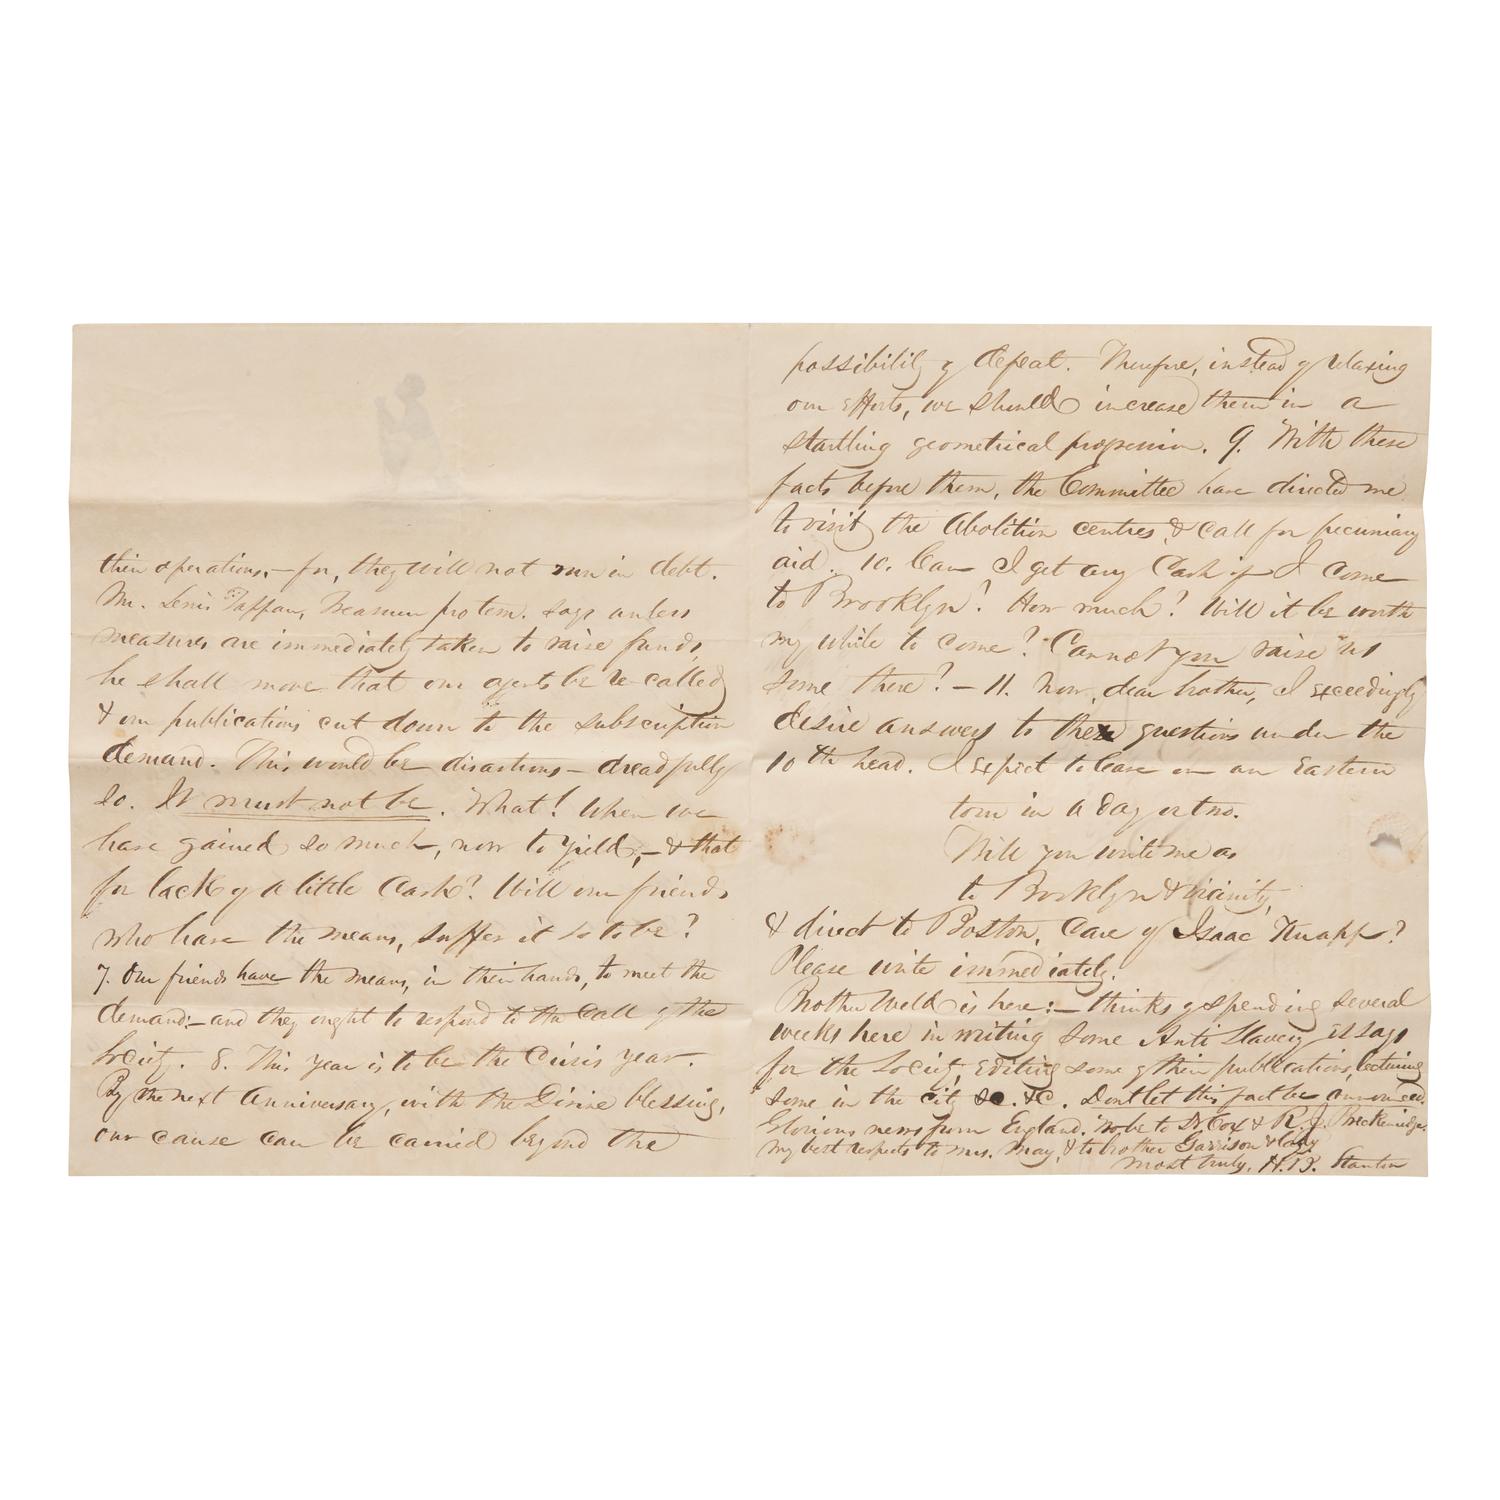 their operations,—for, they will not run in debt.
Mr. Lewis Tappan, Treasurer pro tem. says unless
measures are immediately taken to raise funds,
he shall move that our agents be re-called
& our publications cut down to the subscription
demand. This would be disastrous—dreadfully
so. It must not be. What! When we
have gained so much, now to yield,—& that
for lack of a little Cash? Will our friends
who have the means, suffer it so to be?
7. Our friends have the means, in their hands, to meet the
demand:—and they ought to respond to the Call of the
Society. 8. This year is to be the Crisis year.
By the next Anniversary, with the Divine blessing,
our cause can be carried beyond the
possibility of defeat. Therefore, instead of relaxing
our efforts, we should increase them in a
startling geometrical progression. 9. With these
facts before them, the Committee have directed me
to visit the Abolition centres, & call for pecuniary
aid. 10. Can I get any Cash if I come
to Brooklyn? How much? Will it be worth
my while to come? Cannot you raise us
some there? — 11. Now, dear brother, I exceedingly
desire answers to these questions under the
10th head. I expect to leave on an Eastern
tour in a day or two.
Will you write me as
to Brooklyn & vicinity,
& direct to Boston, Care of Isaac Knapp?
Please write immediately.
Brother Weld is here:—thinks of spending several
weeks here in writing some Anti Slavery essays
for the Society, editing some of their publications, lecturing
some in the city &c. &c. Dont let this fact be announced.
Glorious news from England. Wo be to Dr Cox & R. J. Breckenridge.
My best respects to Mrs. May, & to brother Garrison & lady
most truly, H. B. Stanton